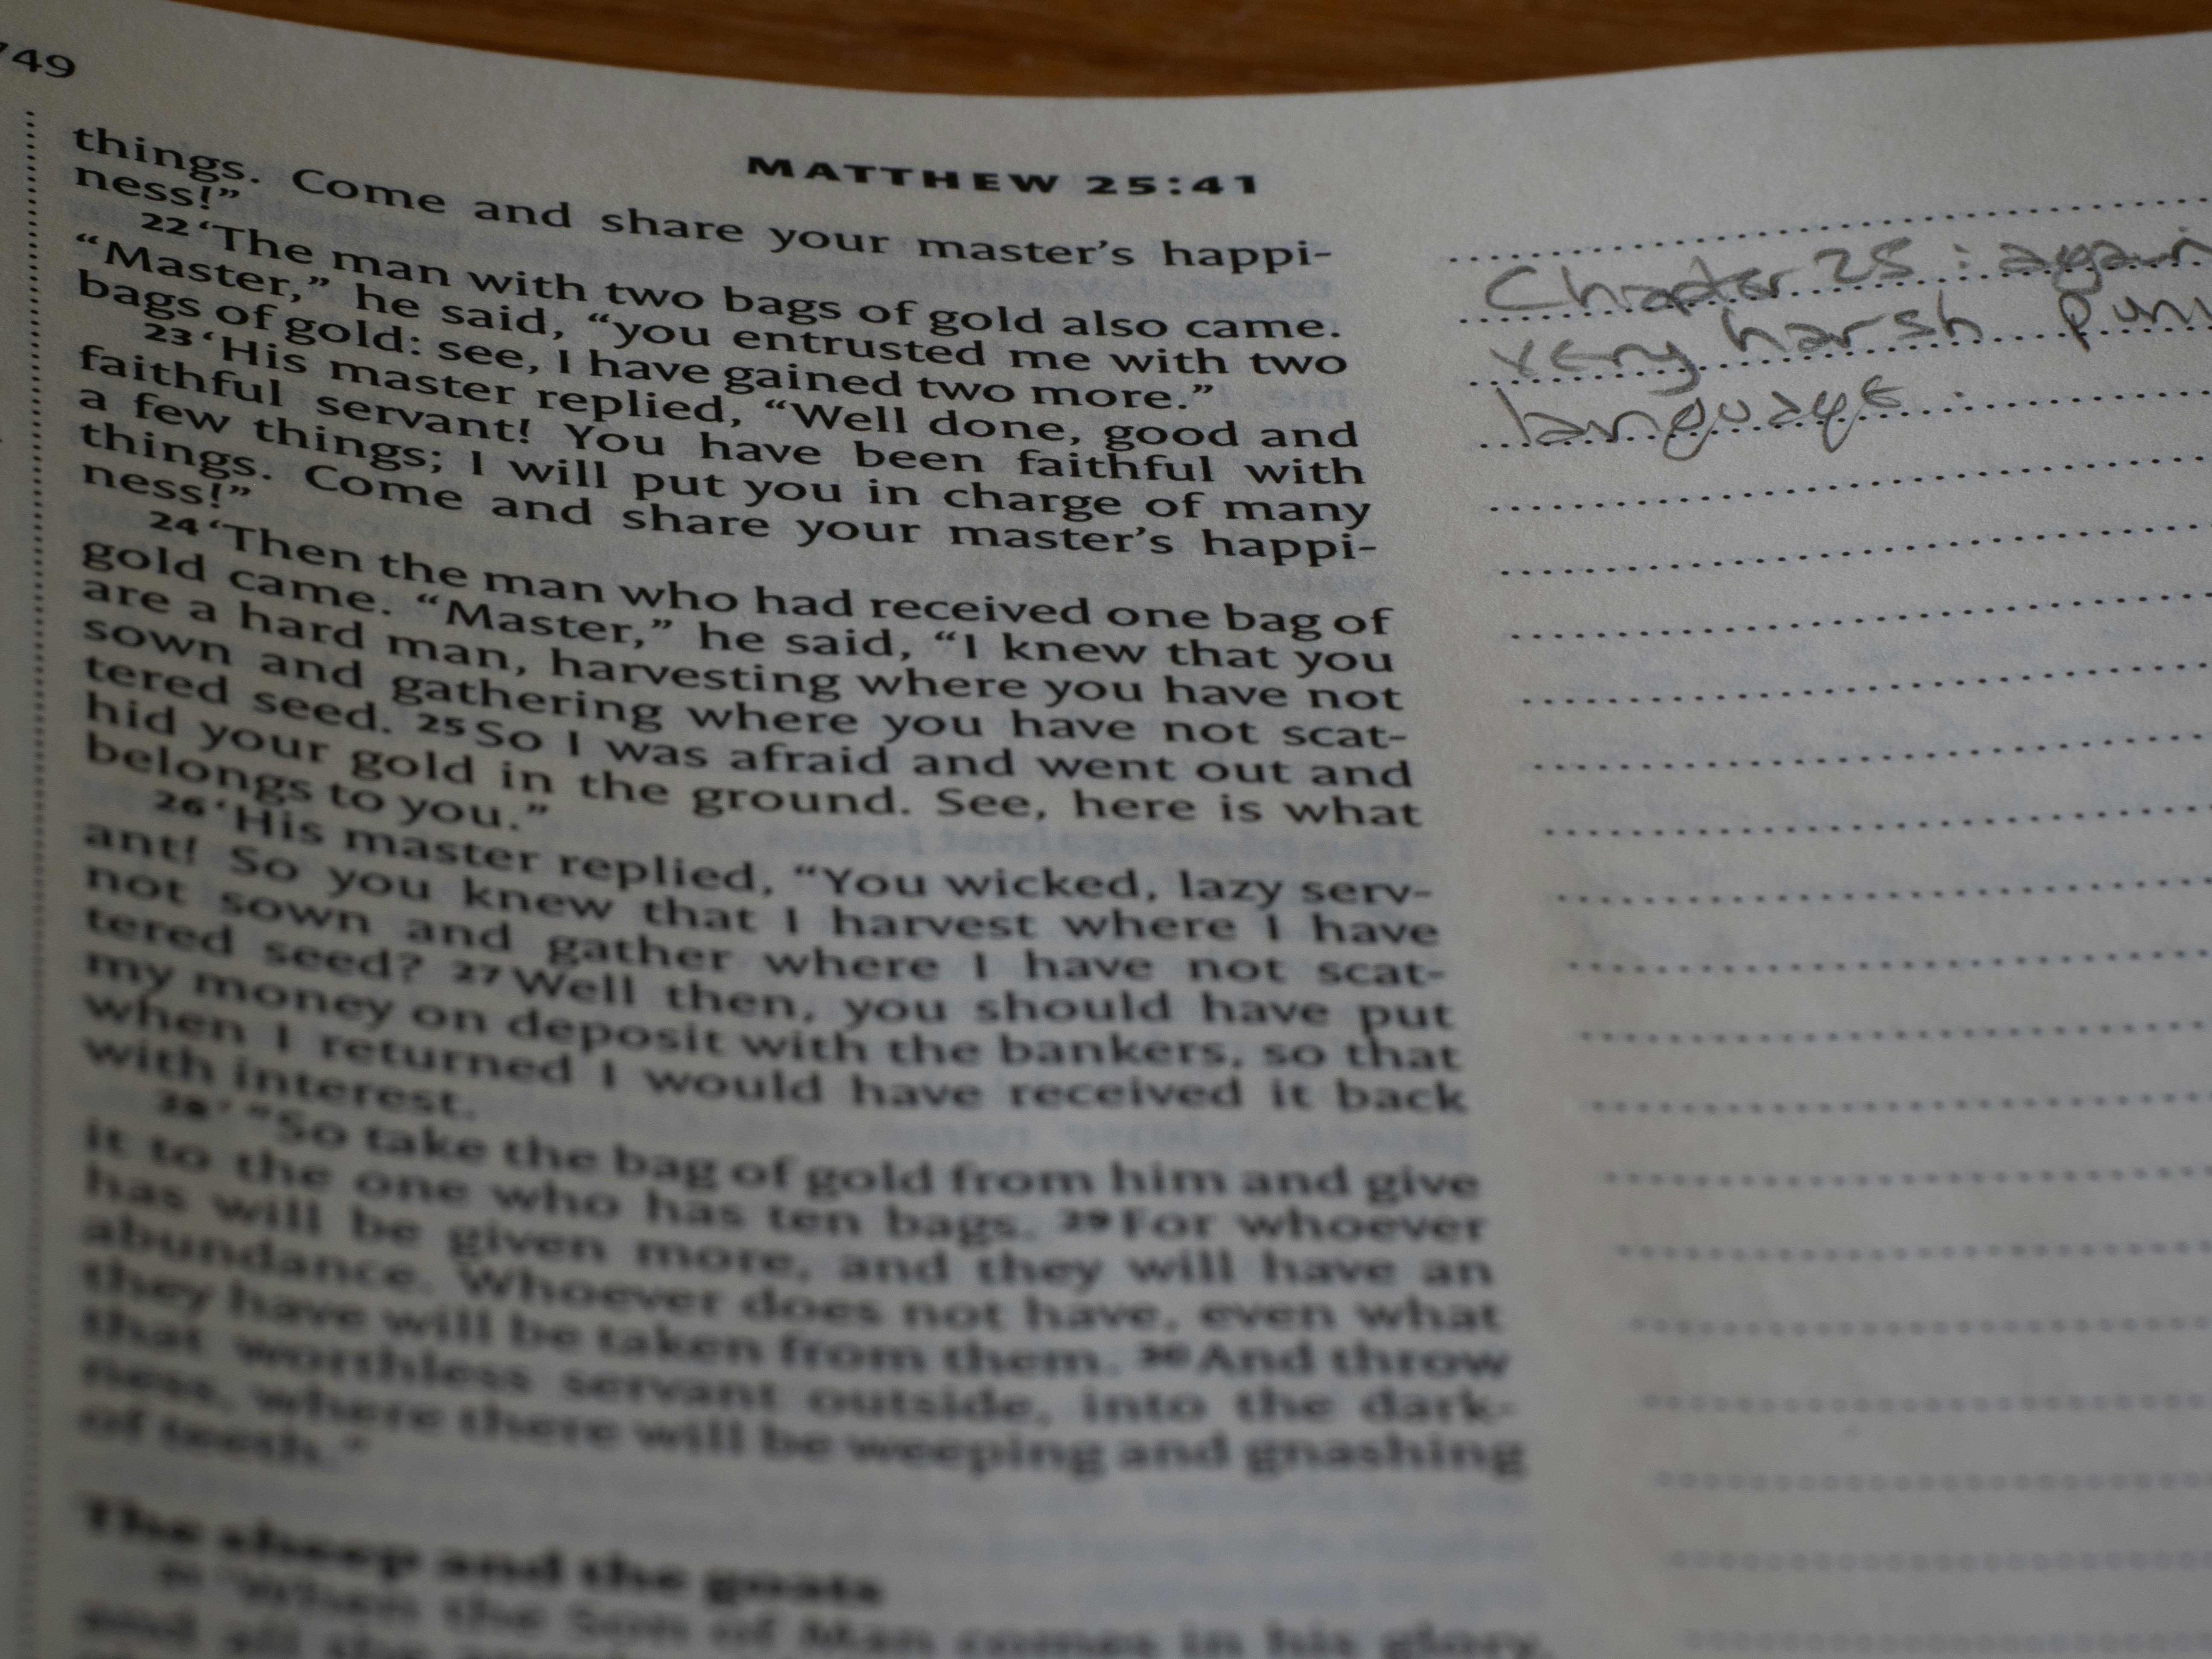 749
MATTHEW 25:41
things. Come and share your master’s happi-
ness!”
22 ‘The man with two bags of gold also came.
“Master,” he said, “you entrusted me with two
bags of gold: see, I have gained two more.”
23 ‘His master replied, “Well done, good and
faithful servant! You have been faithful with
a few things; I will put you in charge of many
things. Come and share your master’s happi-
ness!”
24 ‘Then the man who had received one bag of
gold came. “Master,” he said, “I knew that you
are a hard man, harvesting where you have not
sown and gathering where you have not scat-
tered seed. 25 So I was afraid and went out and
hid your gold in the ground. See, here is what
belongs to you.”
26 ‘His master replied, “You wicked, lazy serv-
ant! So you knew that I harvest where I have
not sown and gather where I have not scat-
tered seed? 27 Well then, you should have put
my money on deposit with the bankers, so that
when I returned I would have received it back
with interest.
28 ‘ “So take the bag of gold from him and give
it to the one who has ten bags. 29 For whoever
has will be given more, and they will have an
abundance. Whoever does not have, even what
they have will be taken from them. 30 And throw
that worthless servant outside, into the dark-
ness, where there will be weeping and gnashing
of teeth.”
The sheep and the goats
31 ‘When the Son of Man comes in his glory,
and all the
Chapter 25 : again
very harsh puni
language.